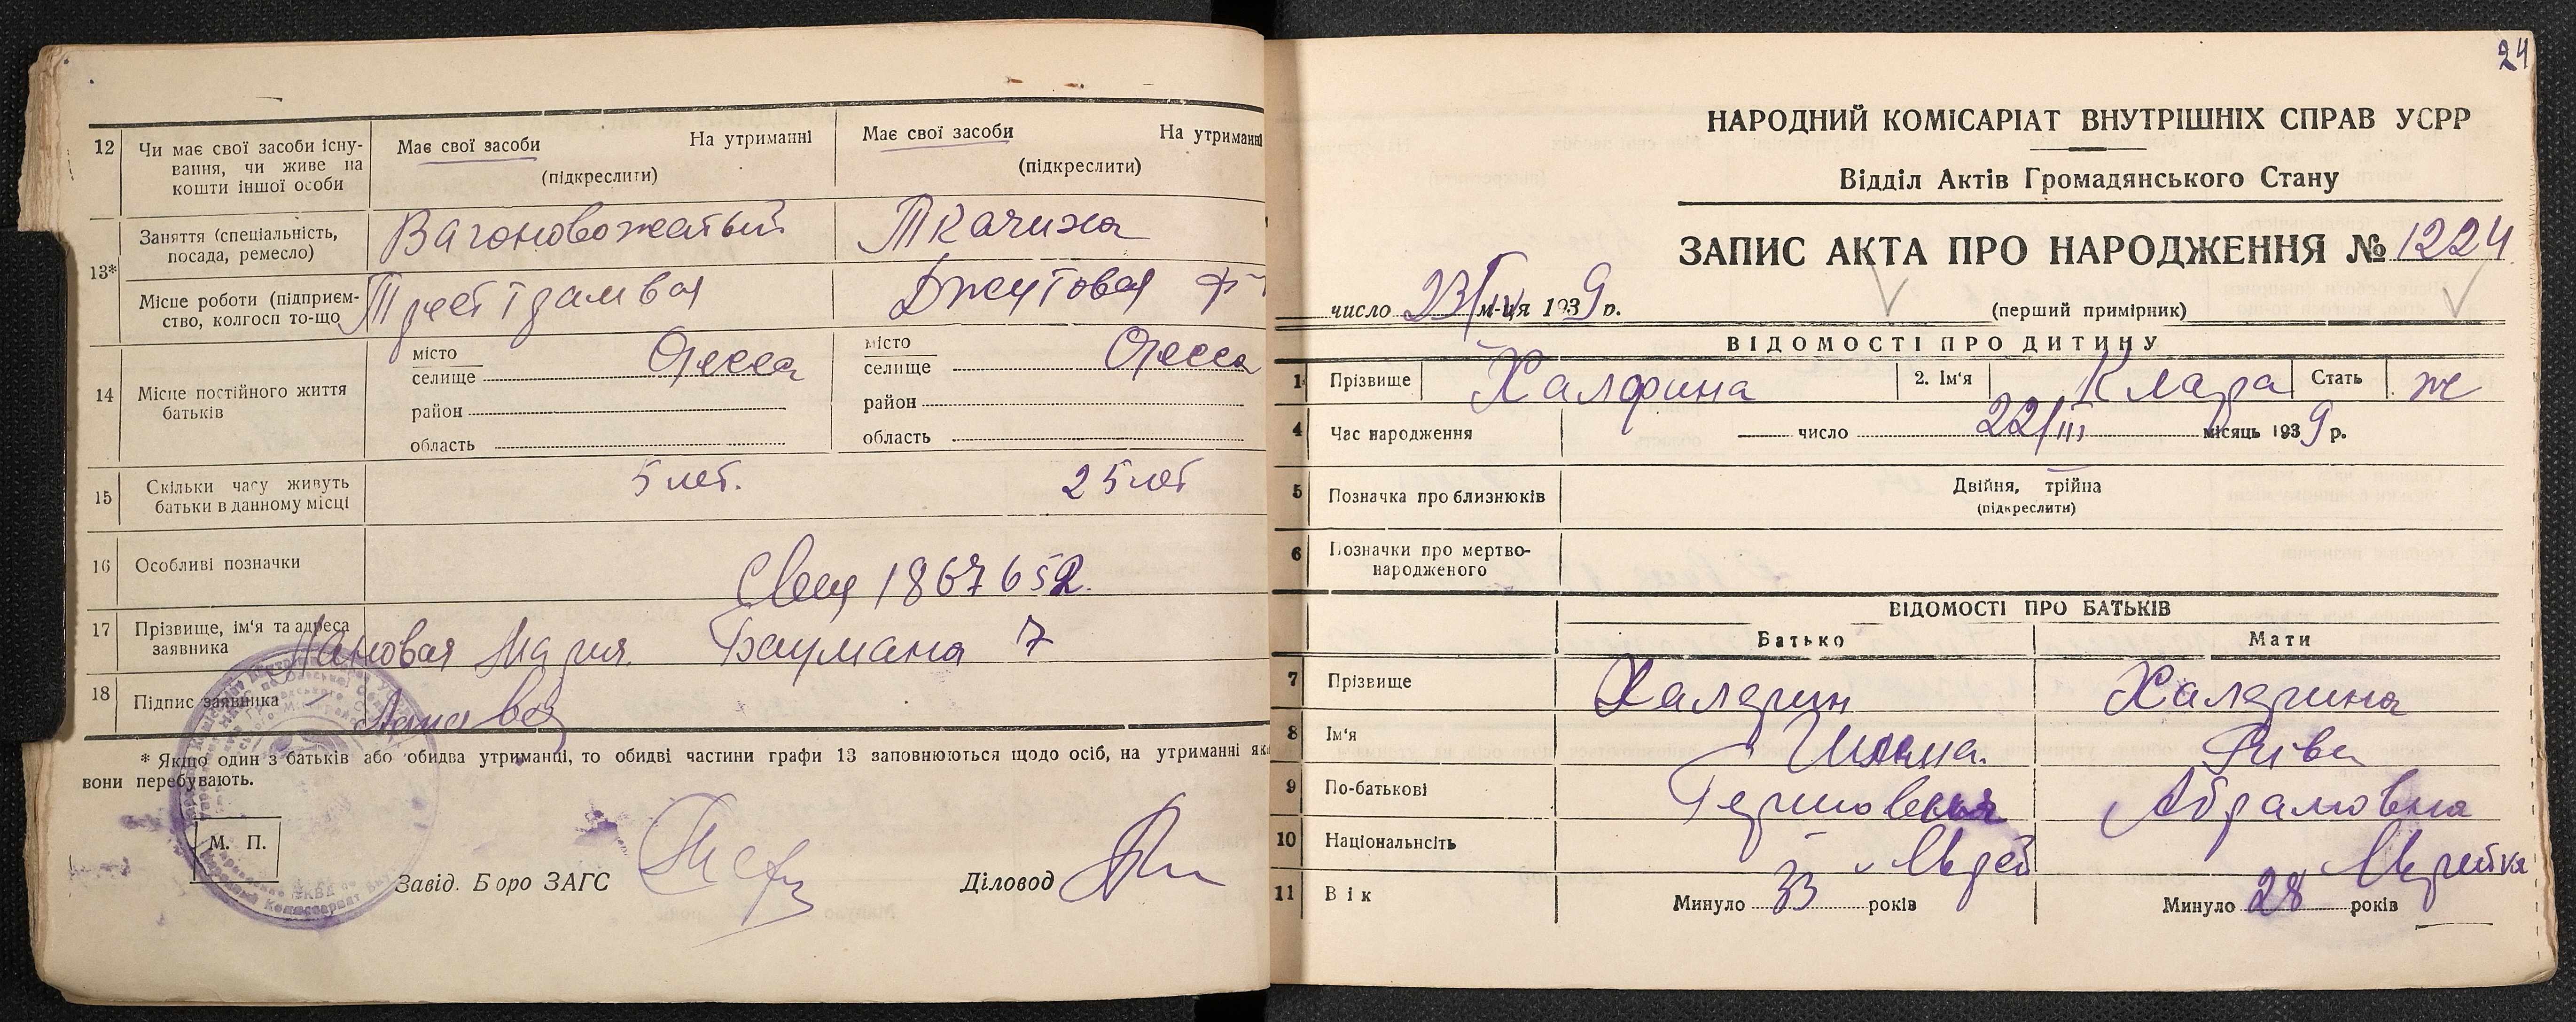 12 Чи має свої засоби існу-
вання, чи живе на
кошти іншої особи
Має свої засоби На утриманні
(підкреслити)
Має свої засоби На утриманні
(підкреслити)
13*
Заняття (спеціальність,
посада, ремесло)
Вагоновожатый
Ткачиха
Місце роботи (підприєм-
ство, колгосп то-що
Трест трамвая
Джутовая
14 Місце постійного життя
батьків
місто
селище Одесса
район
область
місто
селище Одесса
район
область
15 Скільки часу живуть
батьки в данному місці
5 лет.
25 лет
16 Особливі позначки
1867652.
17 Прізвище, ім'я та адреса
заявника
Мария. Баумана 7
18 Підпис заявника
* Якщо один з батьків або обидва утриманці, то обидві частини графи 13 заповнюються щодо осіб, на утриманні як
вони перебувають.
М. П.
Завід. Бюро ЗАГС
Діловод
24
НАРОДНИЙ КОМІСАРІАТ ВНУТРІШНІХ СПРАВ УСРР
Відділ Актів Громадянського Стану
ЗАПИС АКТА ПРО НАРОДЖЕННЯ № 1224
число 23/IV м-ця 1939 р.
(перший примірник)
ВІДОМОСТІ ПРО ДИТИНУ
1 Прізвище Халфина 2. Ім'я Клара Стать ж
4 Час народження число 22/III місяць 1939 р.
5 Позначка про близнюків
Двійня, трійня
(підкреслити)
6 Позначки про мертво-
народженого
ВІДОМОСТІ ПРО БАТЬКІВ
Батько Мати
7 Прізвище Халфин Халфина
8 Ім'я Шлема. Рива
9 По-батькові Абрамовна
10 Національнсіть Еврей Еврейка
11 Вік Минуло 33 років Минуло 28 років